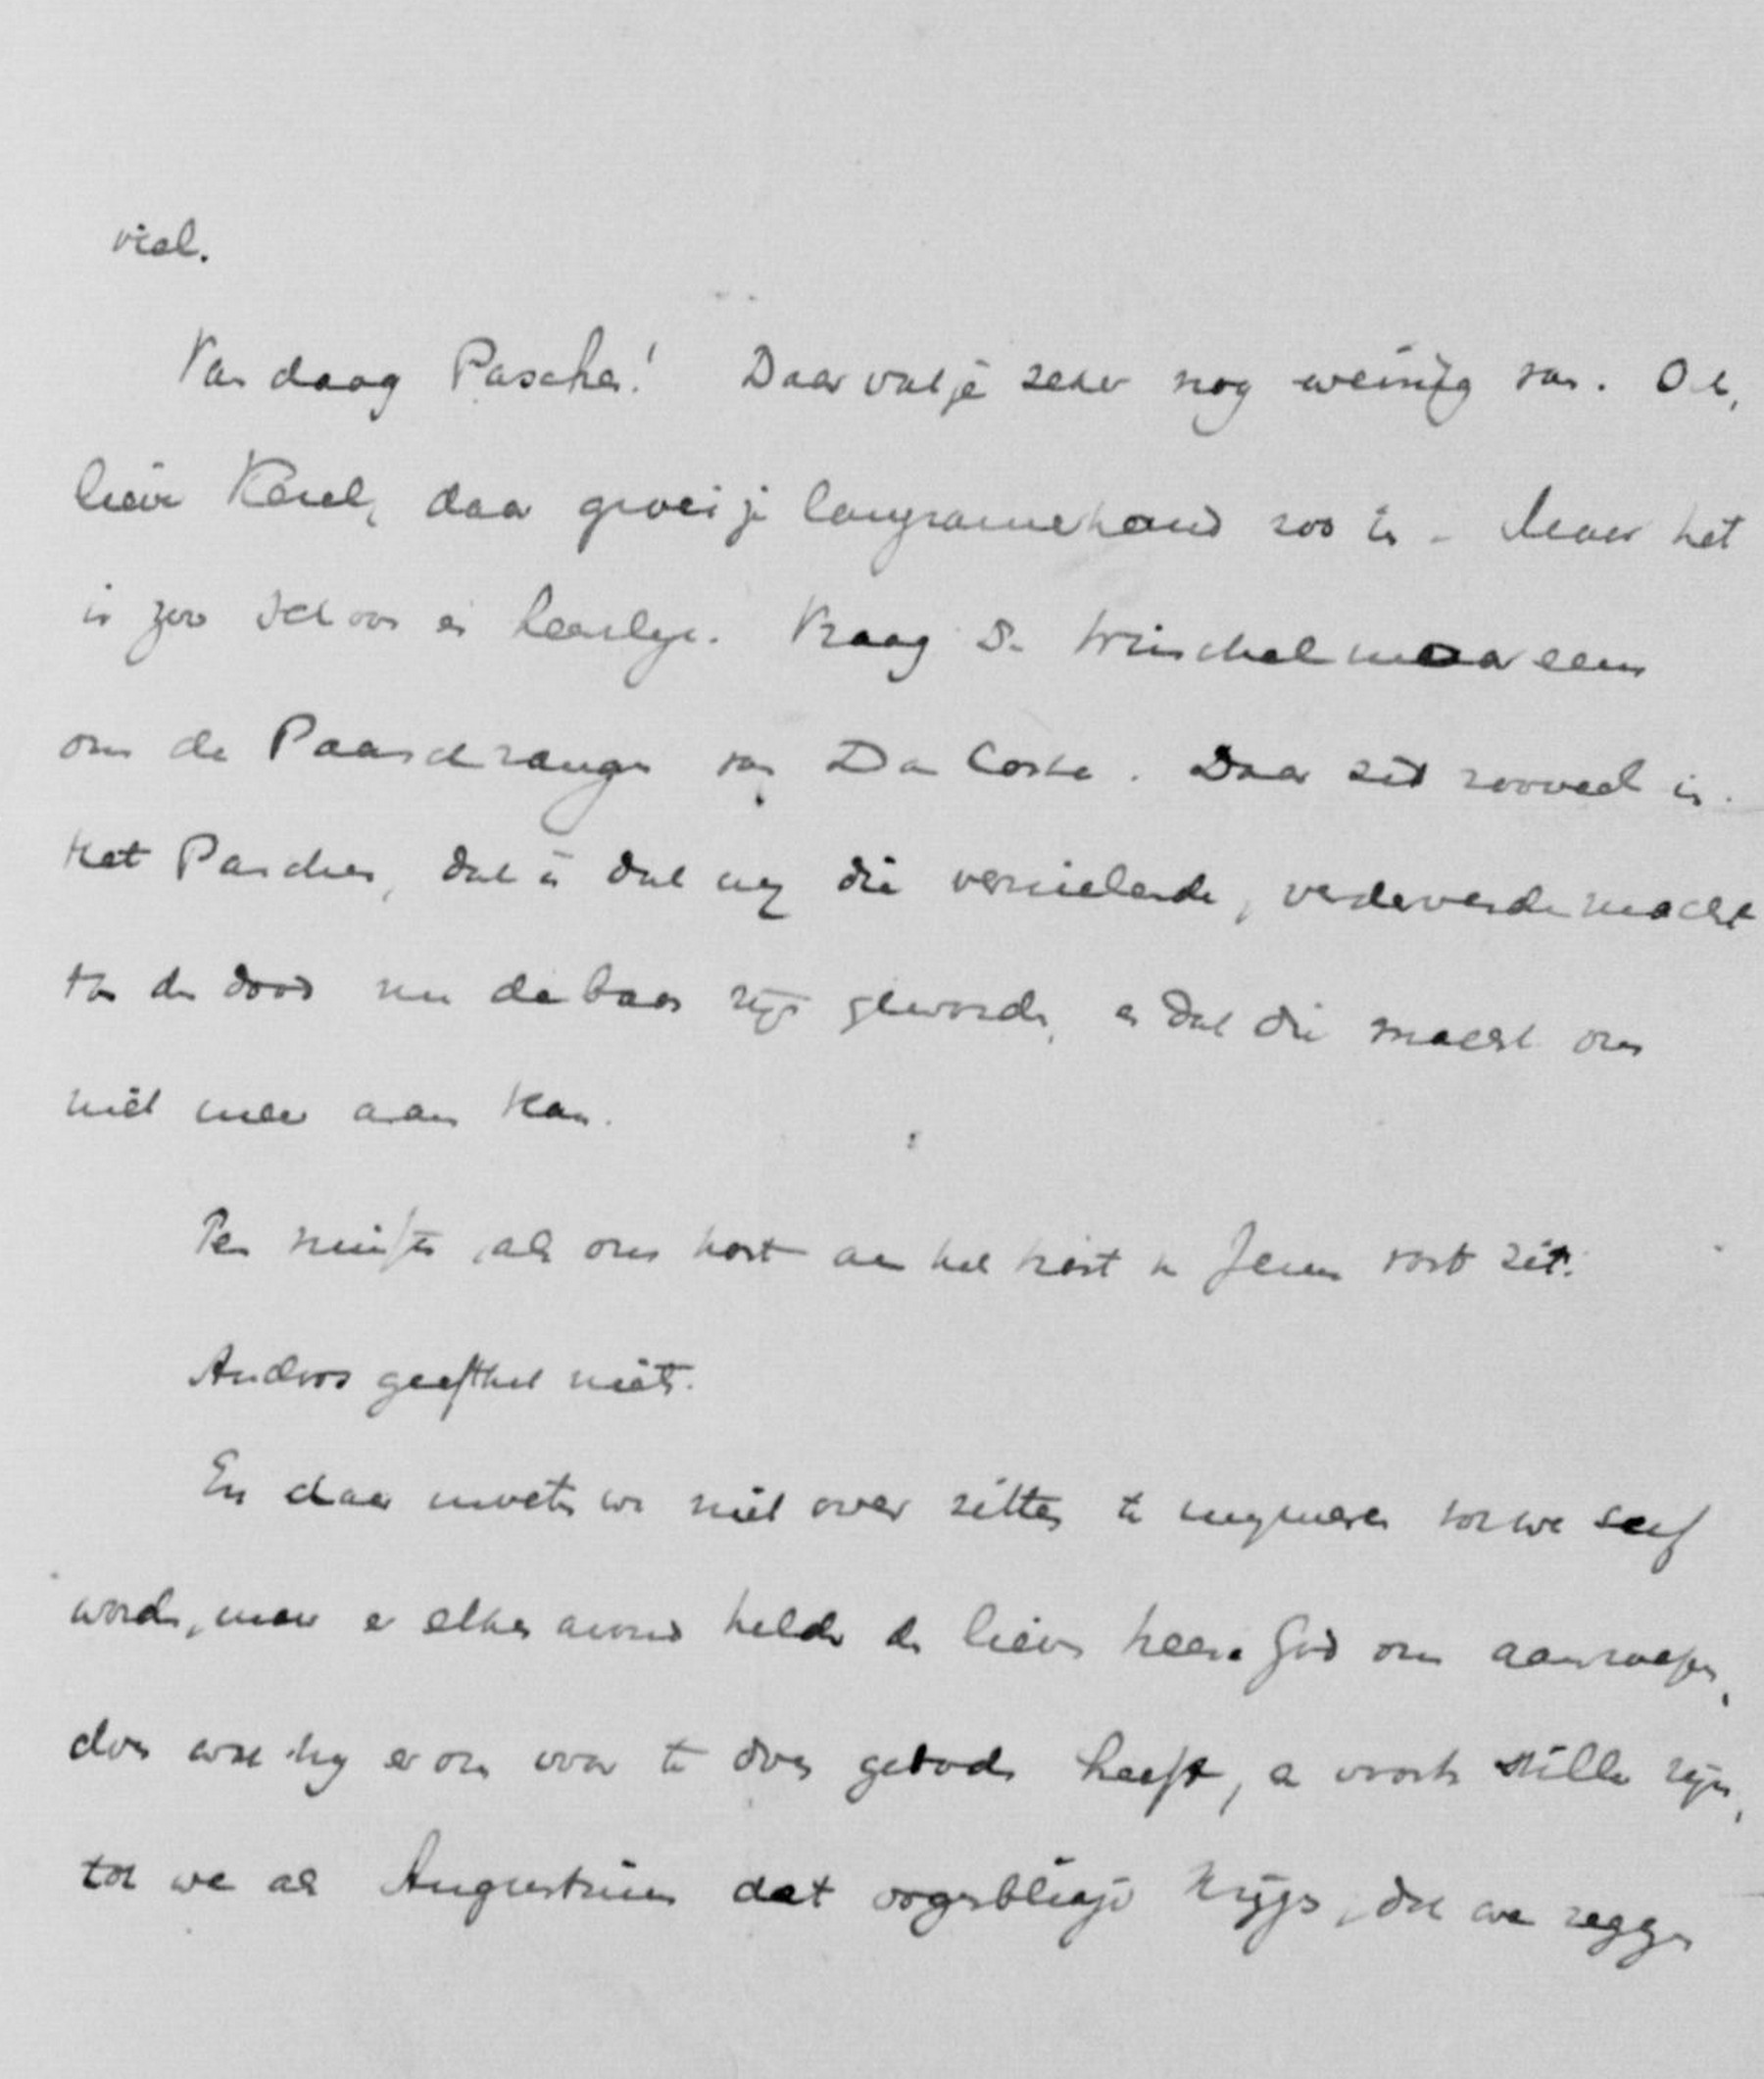 viel.
Vandaag Paschen! Daar vat je zeker nog weinig van. Och,
lieve Karel, daar groei je langzamerhand zoo in - Maar het
is zoo schoon en heerlijk. Vraag Ds Winckel maar eens
om de Paaschzangen van Da Costa. Daar zit zooveel in.
Het Paschen, dat is dat wij die vernielende, verdervende macht
van den dood nu de baas zijn geworden, en dat die macht ons
niet meer aan kan.
Ten minste, als ons hart aan het hart van Jezus vast zit.
Anders geeft het niets.
En daar moeten we niet over zitten te mijmeren tot we suf
worden, maar er elken avond helder den lieven Heere God om aanroepen,
doen wat hij er ons voor te doen geboden heeft, en voorts stille zijn,
tot we als Augustinus dat oogenblikje krijgen, dat we zeggen